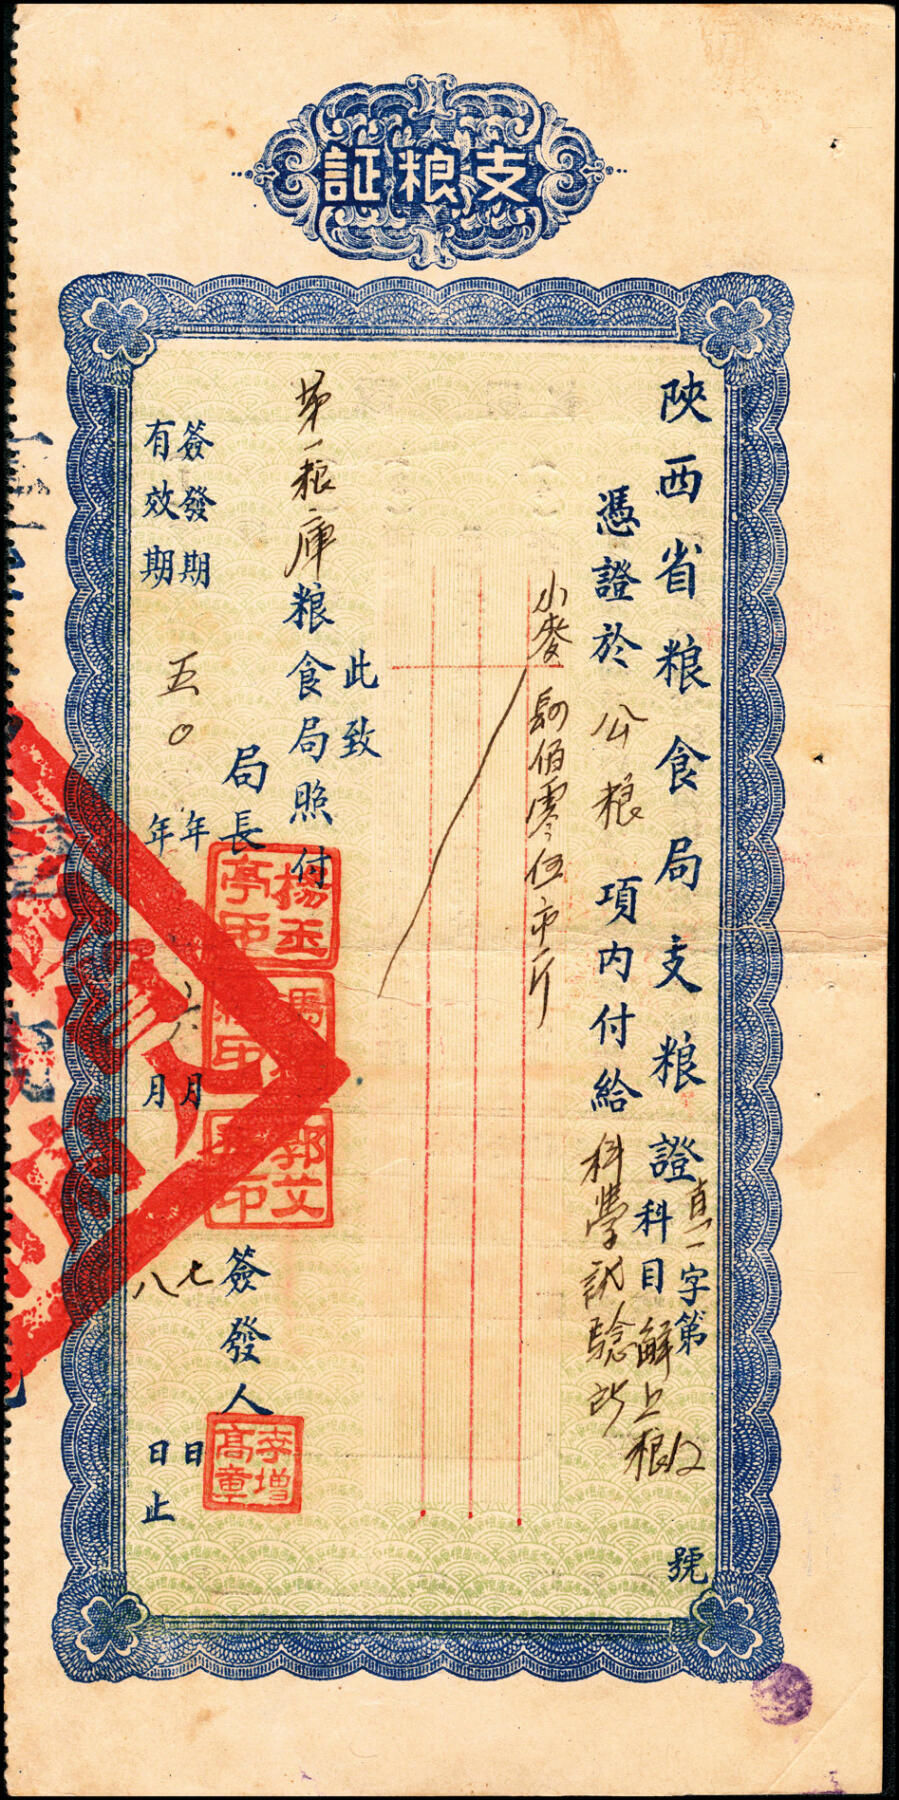 支粮証
陝西省粮食局支粮證
直一字第12號
科目 解上粮
憑證於公粮項内付給科學試驗所
小麥 肆佰零伍市斤
此致
第一粮庫粮食局照付
局長
楊玉亭印
郭艾
簽發人
李增高章
簽發期 五〇年六月七日
有效期 年 月八日止